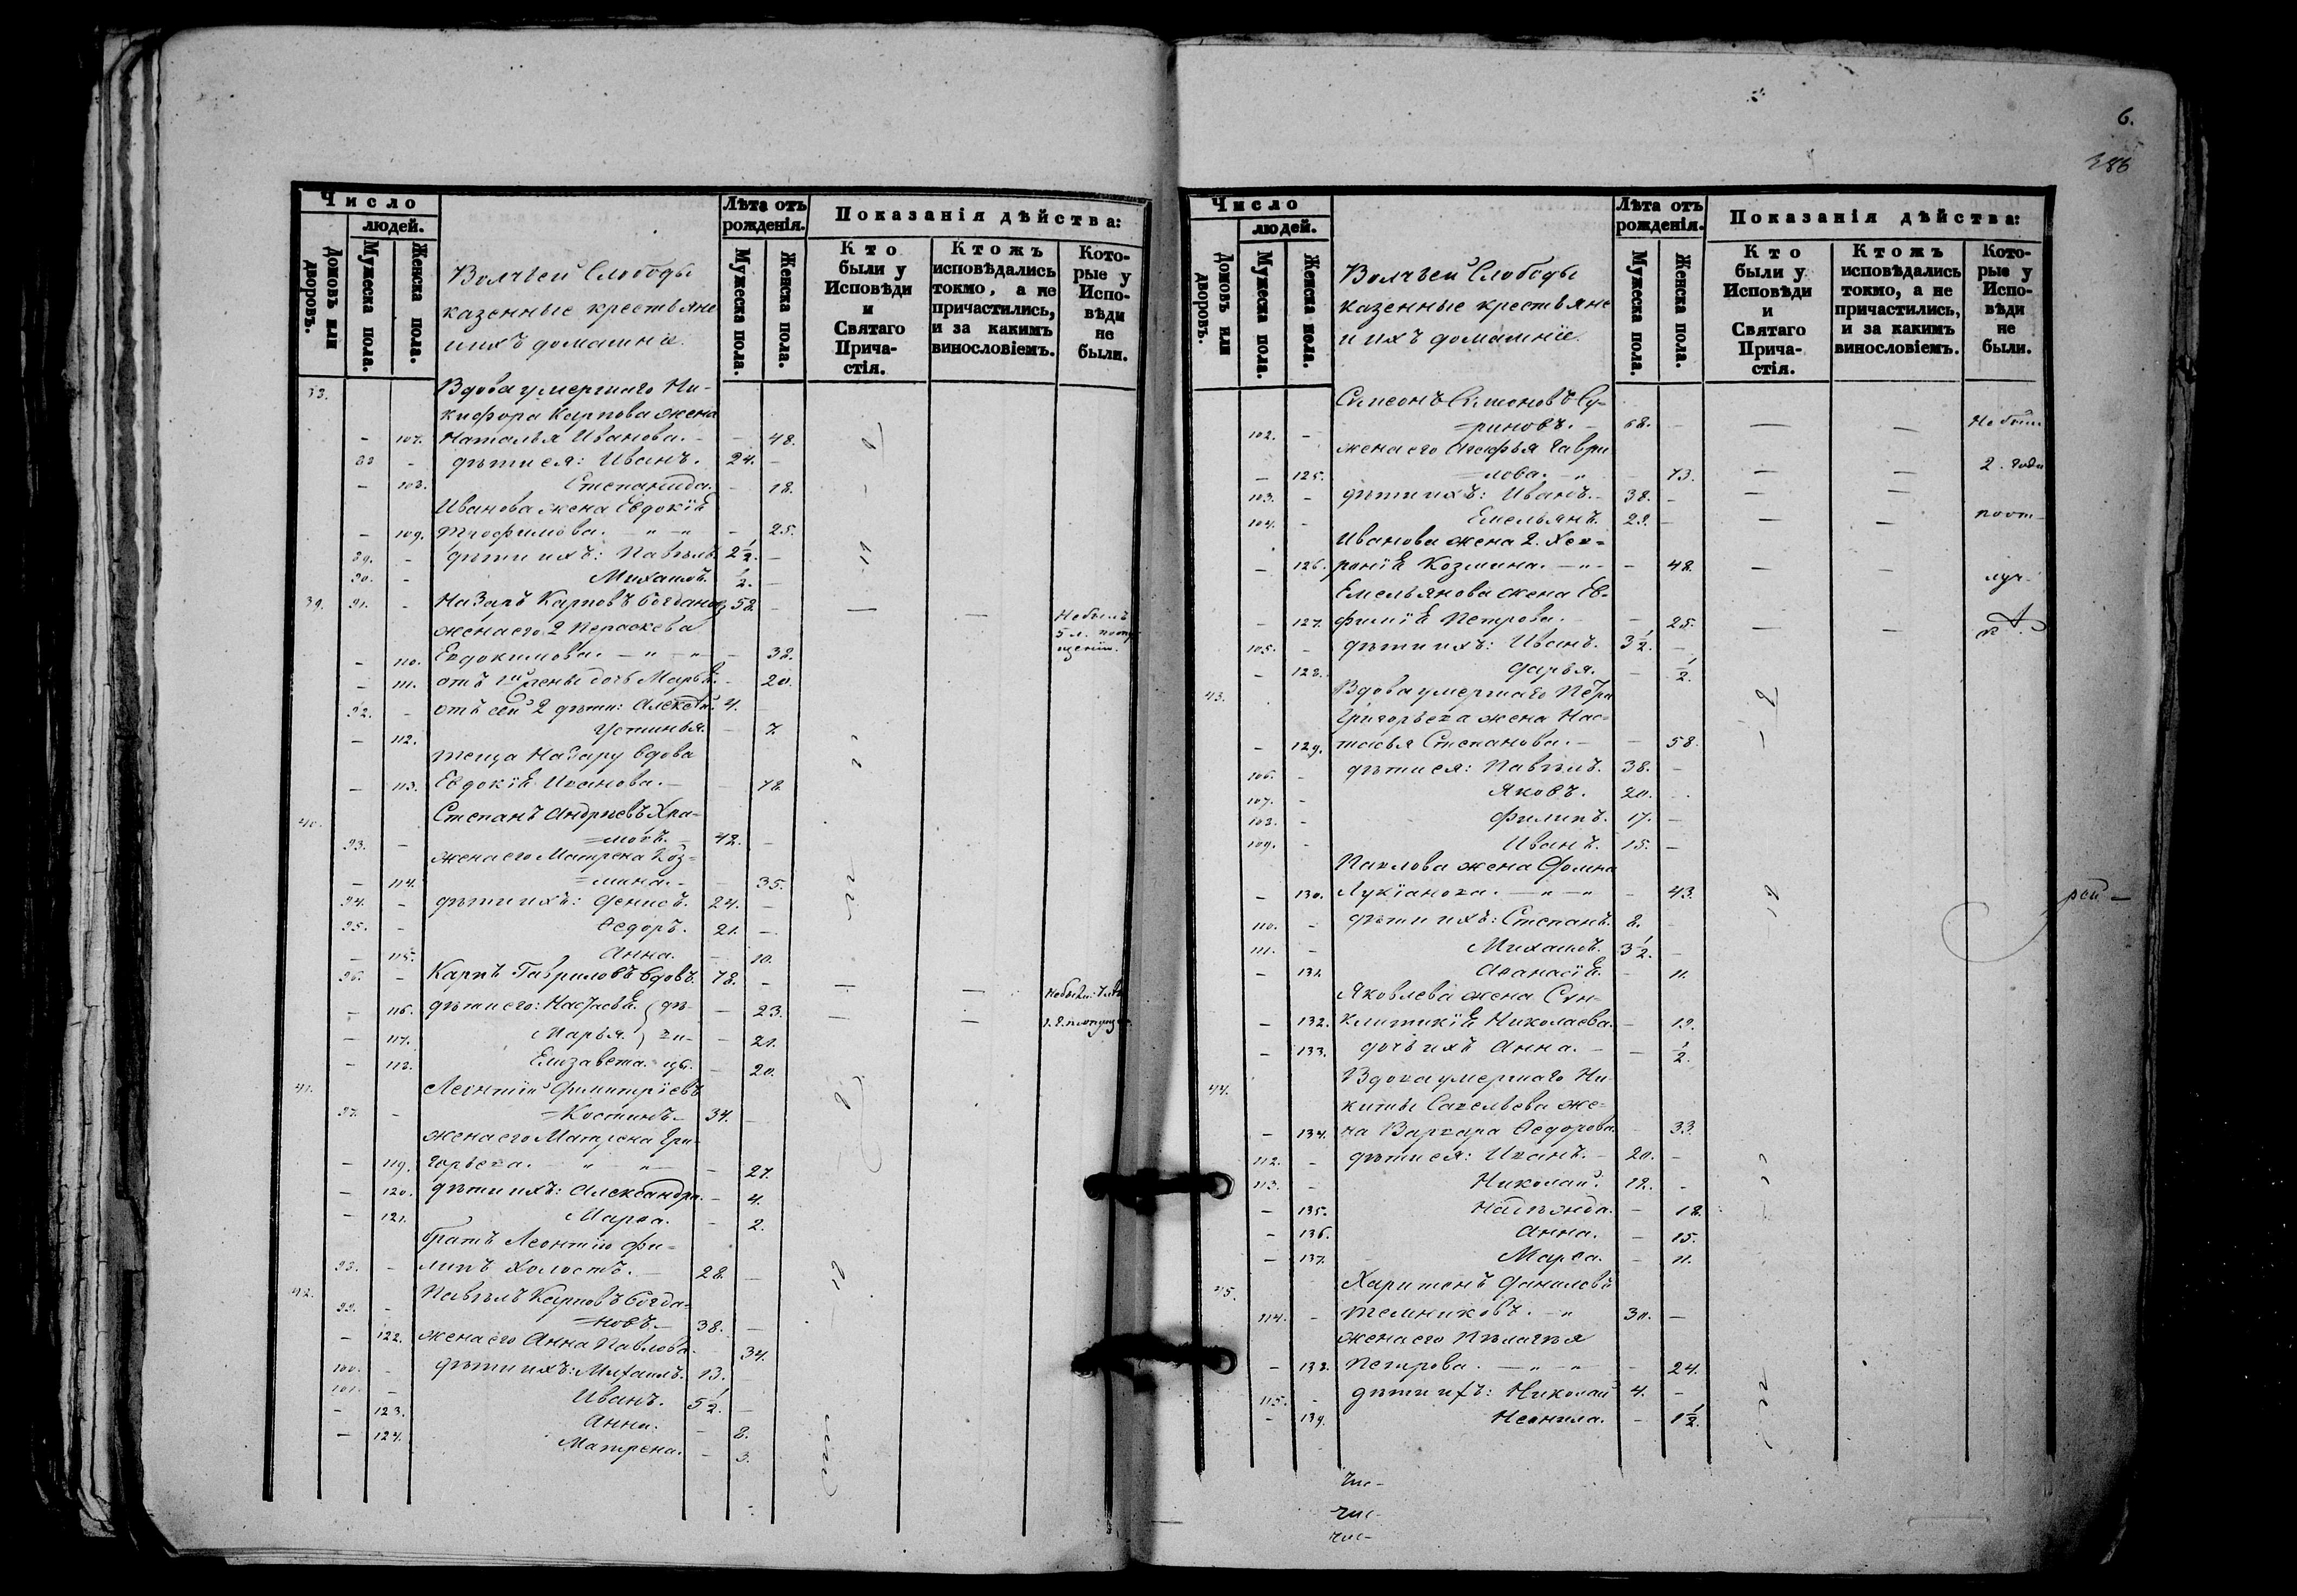 Число
людей.
Домовъ или дворовъ.
Мужеска пола.
Женска пола.
Волчьей Слободы
казенные крестьяне
и ихъ домашніе.
Лѣта отъ рожденія.
Мужеска пола.
Женска пола.
Показанія дѣйства:
Кто были у Исповѣди и Святаго Прича-стія.
Ктожъ исповѣдались токмо, а не причастились, и за какимъ винословіемъ.
Кото-рые у Испо-вѣди не были.
Вдова умершаго Ни-
кифора Карпова жена
– 107. Наталья Иванова. – – 48.
дѣти ея: Иванъ. 24. –
– 108. Степанида. – 18.
Иванова жена Евдокія
– 109. Трофимова. – 25.
89. – дѣти ихъ: Павелъ 2 1/2. –
90. – Михаилъ. 1/2. –
39. 91. – Назаръ Карповъ Богдановъ 52. – Не былъ
жена его 2 Параскева 5 л. по опу-
– 110. Евдокимова. – 32. щенію.
– 111. отъ 1й жены дочь Марья. – 20.
92. – отъ сей 2 дѣти: Алексѣй. 4.
– 112. Устинья. – 7.
теща Назару вдова
– 113. Евдокія Иванова. – – 78.
40. Степанъ Андреевъ Хра-
93. – =мовъ. – 42. –
жена его Матрена Коз-
– 114. =мина. – – 35.
94. – дѣти ихъ: Денисъ. 24. –
95. – Ѳедоръ. 21. –
– 115. Анна. – 10.
96. – Карпъ Гавриловъ вдовъ. 78. –
– 116. дѣти его: Настасья. дѣ- – 23.
– 117. Марья. ви- – 21.
– 118. Елизавета. цы. – 20.
41. Леонтій Димитріевъ
97. – =Костинъ. – 34. –
жена его Матрена Гри-
– 119. горьева. – 27.
– 120. дѣти ихъ: Александра. – 4.
– 121. Марѳа. – 2.
братъ Леонтію Фи-
98. – липъ холостъ. – 28. –
42. Павелъ Карповъ Богда-
99. – =новъ. – 38. –
– 122. жена его Анна Павлова. – 34.
100. – дѣти ихъ: Михаилъ. 13. –
101. – Иванъ. 5 1/2. –
– 123. Анна. – 8.
– 124. Матрена. – 3.
6.
Число
людей.
Домовъ или дворовъ.
Мужеска пола.
Женска пола.
Волчьей Слободы
казенные крестьяне
и ихъ домашніе.
Лѣта отъ рожденія.
Мужеска пола.
Женска пола.
Показанія дѣйства:
Кто были у Исповѣди и Святаго Прича-стія.
Ктожъ исповѣдались токмо, а не причастились, и за какимъ винословіемъ.
Кото-рые у Испо-вѣди не были.
Симеонъ Симоновъ Су-
102. – =риновъ. – 68. – – –
жена его Агафья Гаври
– 125. =лова. – 73. – – 2. года
103. – дѣти ихъ: Иванъ. – 38. – – –
104. – Емельянъ. 29. – – – по от-
Иванова жена 2. Хев=
– 126. ронія Козмина. – – 48. – – луч-
Емельянова жена Ев-
– 127. фимія Петрова. – – 25. – –
105. – дѣти ихъ: Иванъ. 3 1/2. –
– 128. Дарья. – 1/2.
43. Вдова умершаго Петра
Григорьева жена Нас=
– 129. тасья Степанова. – – 58.
106. – дѣти ея: Павелъ. 38. –
107. – Яковъ. 20. –
108. – Филипъ. 17. –
109. – Иванъ. 15. –
Павлова жена Домна
– 130. Лукіанова. – 43. рей –
110. – дѣти ихъ: Степанъ. 8. –
111. – Михаилъ. 3 1/2. –
– 131. Аѳанасія. – 11.
Яковлева жена Син-
– 132. клитикія Николаева. – 19.
– 133. дочь ихъ Анна. – – 1/2.
44. Вдова умершаго Ни-
киты Савельева же=
– 134. на Варвара Ѳедорова. – 33.
112. – дѣти ея: Иванъ. – 20. –
113. – Николай. 12. –
– 135. Надежда. – 18.
– 136. Анна. – 15.
– 137. Марѳа. – 11.
45. Харитонъ Даниловъ
114. – Темниковъ. – 30. –
жена его Пелагея
– 138. Петрова. – 24.
115. – дѣти ихъ: Николай 4. –
– 139. Неонила. – 1 1/2.
Чис-
чис-
чис-